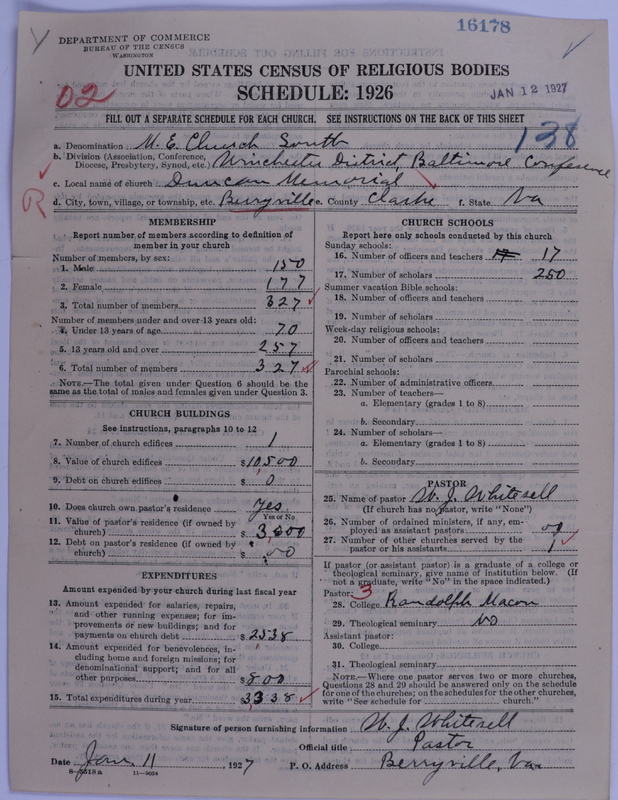 16178
DEPARTMENT OF COMMERCE
BUREAU OF THE CENSUS
WASHINGTON
UNITED STATES CENSUS OF RELIGIOUS BODIES
SCHEDULE: 1926
JAN 12 1927
02
FILL OUT A SEPARATE SCHEDULE FOR EACH CHURCH. SEE INSTRUCTIONS ON THE BACK OF THIS SHEET
138
a. Denomination M. E. Church South
b. Division (Association, Conference, Diocese, Presbytery, Synod, etc.) Winchester District Baltimore Conference
c. Local name of church Duncan Memorial
R
d. City, town, village, or township, etc. Berryville e. County Clarke f. State Va
MEMBERSHIP
Report number of members according to definition of
member in your church
Number of members, by sex:
1. Male 150
2. Female 177
3. Total number of members 327
Number of members under and over 13 years old:
4. Under 13 years of age 70
5. 13 years old and over 257
6. Total number of members 327
NOTE.—The total given under Question 6 should be the
same as the total of males and females given under Question 3.
CHURCH BUILDINGS
See instructions, paragraphs 10 to 12
7. Number of church edifices 1
8. Value of church edifices $10,500
9. Debt on church edifices $ 0
10. Does church own pastor's residence Yes
Yes or No
11. Value of pastor's residence (if owned by
church) $ 3,000
12. Debt on pastor's residence (if owned by
church) $ 00
EXPENDITURES
Amount expended by your church during last fiscal year
13. Amount expended for salaries, repairs,
and other running expenses; for im-
provements or new buildings; and for
payments on church debt $2538
14. Amount expended for benevolences, in-
cluding home and foreign missions; for
denominational support; and for all
other purposes $800
15. Total expenditures during year $3338
CHURCH SCHOOLS
Report here only schools conducted by this church
Sunday schools:
16. Number of officers and teachers 17
17. Number of scholars 250
Summer vacation Bible schools:
18. Number of officers and teachers
19. Number of scholars
Week-day religious schools:
20. Number of officers and teachers
21. Number of scholars
Parochial schools:
22. Number of administrative officers
23. Number of teachers—
a. Elementary (grades 1 to 8)
b. Secondary
24. Number of scholars—
a. Elementary (grades 1 to 8)
b. Secondary
PASTOR
25. Name of pastor W. J. Whitesell
(If church has no pastor, write "None")
26. Number of ordained ministers, if any, em-
ployed as assistant pastors 00
27. Number of other churches served by the
pastor or his assistants 1
If pastor (or assistant pastor) is a graduate of a college or
theological seminary, give name of institution below. (If
not a graduate, write "No" in the space indicated.)
Pastor: 3
28. College Randolph Macon
29. Theological seminary no
Assistant pastor:
30. College
31. Theological seminary
NOTE.—Where one pastor serves two or more churches,
Questions 28 and 29 should be answered only on the schedule
for one of the churches; on the schedules for the other churches,
write "See schedule for church."
Signature of person furnishing information W. J. Whitesell
Official title Pastor
Date Jan. 11, 1927 P. O. Address Berryville, Va
8—5518a 11—9034